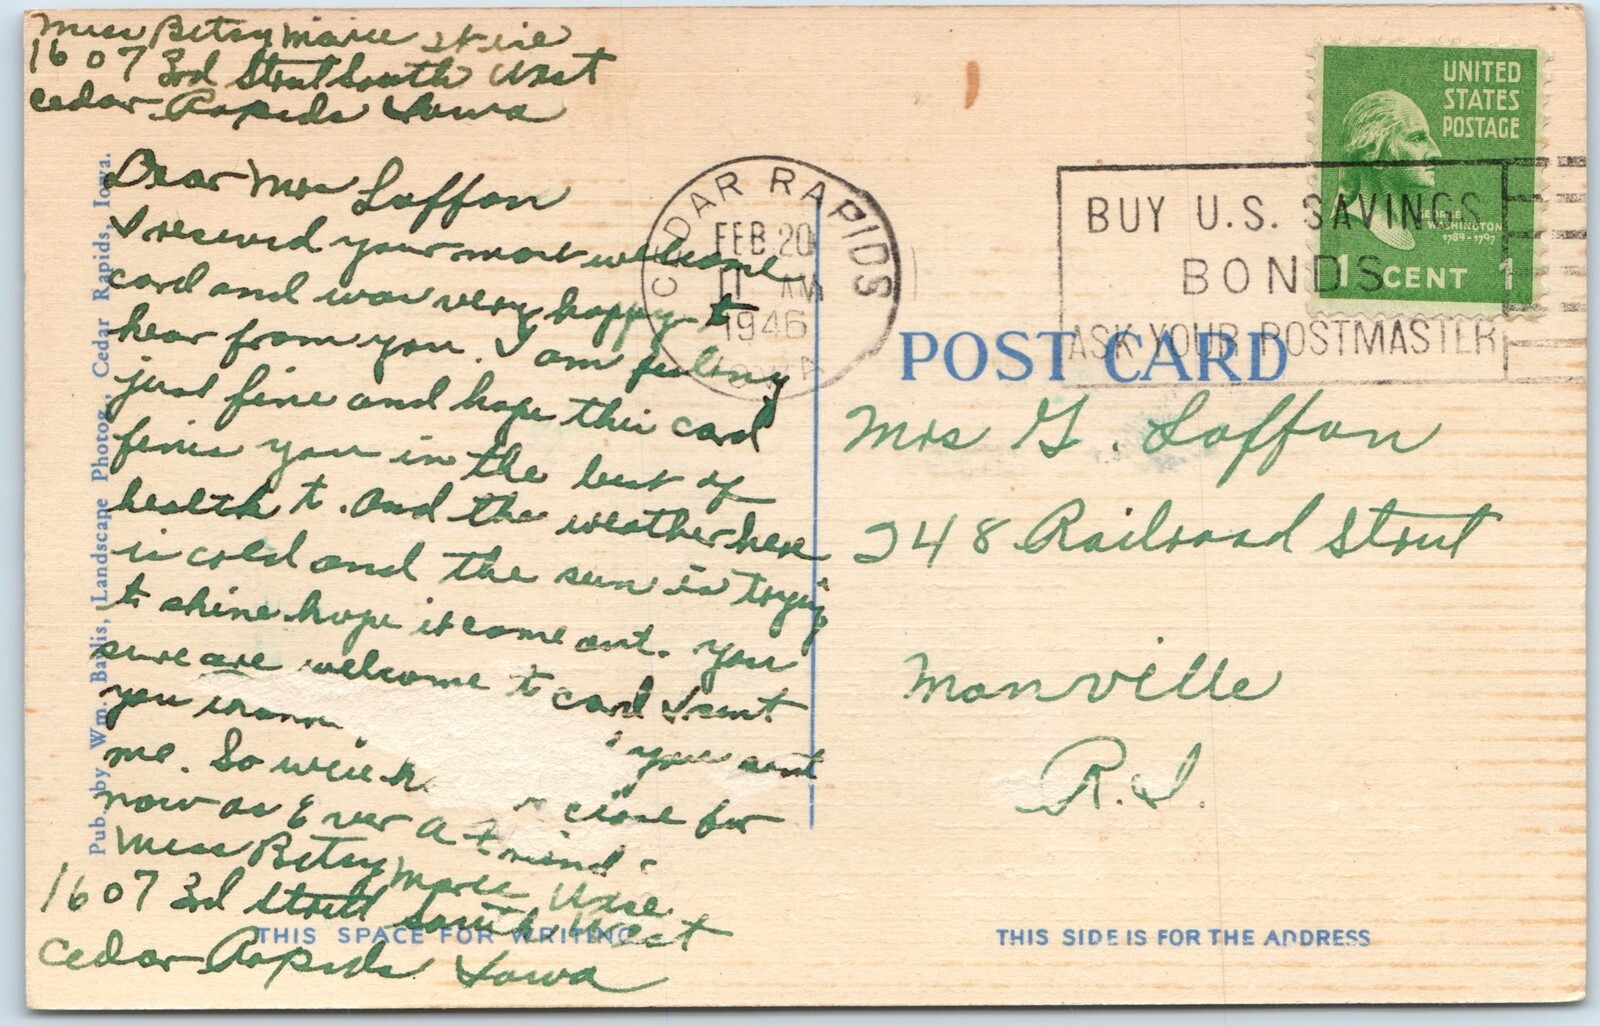 Miss Betsy Marie
1607 3rd Street South West
Cedar Rapids Iowa
Dear Mrs Laffan
I reseved your most welcome
card and was very happy to
hear from you. I am feeling
just fine and hope this card
finis you in the best of
health to. And the weather here
is cold and the sun is trying
to shine hope it come out. you
sure are welcome to card I sent
you
you sent
me. So close for
now as Ever A Friend
Miss Betsy Marie
1607 3rd Street South West
Cedar Rapids Iowa
Pub. by Wm. Baylis, Landscape Photog., Cedar Rapids, Iowa.
THIS SPACE FOR WRITING
CEDAR RAPIDS
FEB 20
11 AM
1946
IOWA
BUY U.S. SAVINGS
BONDS
ASK YOUR POSTMASTER
UNITED
STATES
POSTAGE
GEORGE
WASHINGTON
1789-1797
1 CENT 1
POST CARD
Mrs G. Laffan
248 Railroad Street
Manville
R.I.
THIS SIDE IS FOR THE ADDRESS